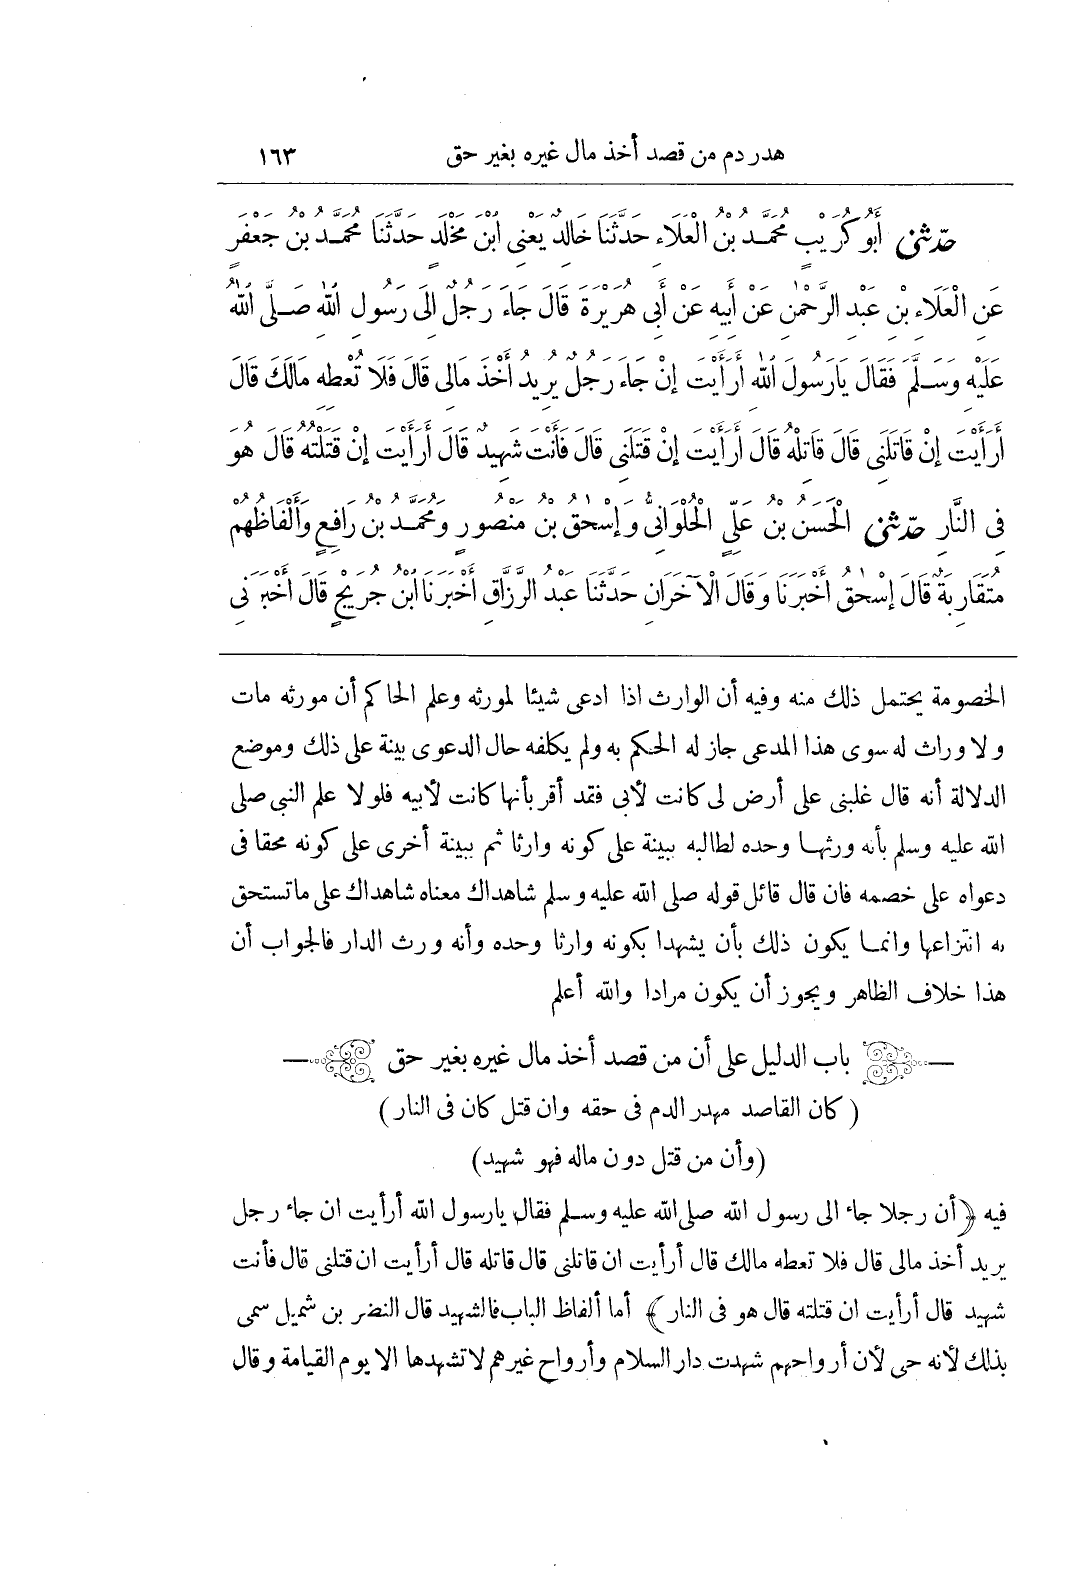 هدر دم من قصد أخذ مال غيره بغير حق ١٦٣
حَدَّثَنِي أَبُو كُرَيْبٍ مُحَمَّدُ بْنُ الْعَلَاءِ حَدَّثَنَا خَالِدٌ يَعْنِى ابْنَ مَخْلَدٍ حَدَّثَنَا مُحَمَّدُ بْنُ جَعْفَرٍ
عَنِ الْعَلَاءِ بْنِ عَبْدِ الرَّحْمٰنِ عَنْ أَبِيهِ عَنْ أَبِى هُرَيْرَةَ قَالَ جَاءَ رَجُلٌ إِلَى رَسُولِ اللّٰهِ صَلَّى اللّٰهُ
عَلَيْهِ وَسَلَّمَ فَقَالَ يَارَسُولَ اللّٰهِ أَرَأَيْتَ إِنْ جَاءَ رَجُلٌ يُرِيدُ أَخْذَ مَالِى قَالَ فَلَا تُعْطِهِ مَالَكَ قَالَ
أَرَأَيْتَ إِنْ قَاتَلَنِى قَالَ قَاتِلْهُ قَالَ أَرَأَيْتَ إِنْ قَتَلَنِى قَالَ فَأَنْتَ شَهِيدٌ قَالَ أَرَأَيْتَ إِنْ قَتَلْتُهُ قَالَ هُوَ
فِى النَّارِ حَدَّثَنِي الْحَسَنُ بْنُ عَلِيٍّ الْحُلْوَانِىُّ وَإِسْحٰقُ بْنُ مَنْصُورٍ وَمُحَمَّدُ بْنُ رَافِعٍ وَأَلْفَاظُهُمْ
مُتَقَارِبَةٌ قَالَ إِسْحٰقُ أَخْبَرَنَا وَقَالَ الْآخَرَانِ حَدَّثَنَا عَبْدُ الرَّزَّاقِ أَخْبَرَنَا ابْنُ جُرَيْجٍ قَالَ أَخْبَرَنِى
الخصومة يحتمل ذلك منه وفيه أن الوارث اذا ادعى شيئا لمورثه وعلم الحاكم أن مورثه مات
ولا وراث له سوى هذا المدعى جاز له الحكم به ولم يكلفه حال الدعوى بينة على ذلك وموضع
الدلالة أنه قال غلبنى على أرض لى كانت لأبى فقد أقر بأنها كانت لأبيه فلولا علم النبى صلى
الله عليه وسلم بأنه ورثها وحده لطالبه ببينة على كونه وارثا ثم ببينة أخرى على كونه محقا فى
دعواه على خصمه فان قال قائل قوله صلى الله عليه وسلم شاهداك معناه شاهداك على ماتستحق
به انتزاعها وانما يكون ذلك بأن يشهدا بكونه وارثا وحده وأنه ورث الدار فالجواب أن
هذا خلاف الظاهر ويجوز أن يكون مرادا والله أعلم
باب الدليل على أن من قصد أخذ مال غيره بغير حق
(كان القاصد مهدر الدم فى حقه وان قتل كان فى النار)
(وأن من قتل دون ماله فهو شهيد)
فيه ﴿أن رجلا جاء الى رسول الله صلى الله عليه وسلم فقال يارسول الله أرأيت ان جاء رجل
يريد أخذ مالى قال فلا تعطه مالك قال أرأيت ان قاتلنى قال قاتله قال أرأيت ان قتلنى قال فأنت
شهيد قال أرأيت ان قتلته قال هو فى النار﴾ أما ألفاظ الباب فالشهيد قال النضر بن شميل سمى
بذلك لأنه حى لأن أرواحهم شهدت دار السلام وأرواح غيرهم لاتشهدها الا يوم القيامة وقال